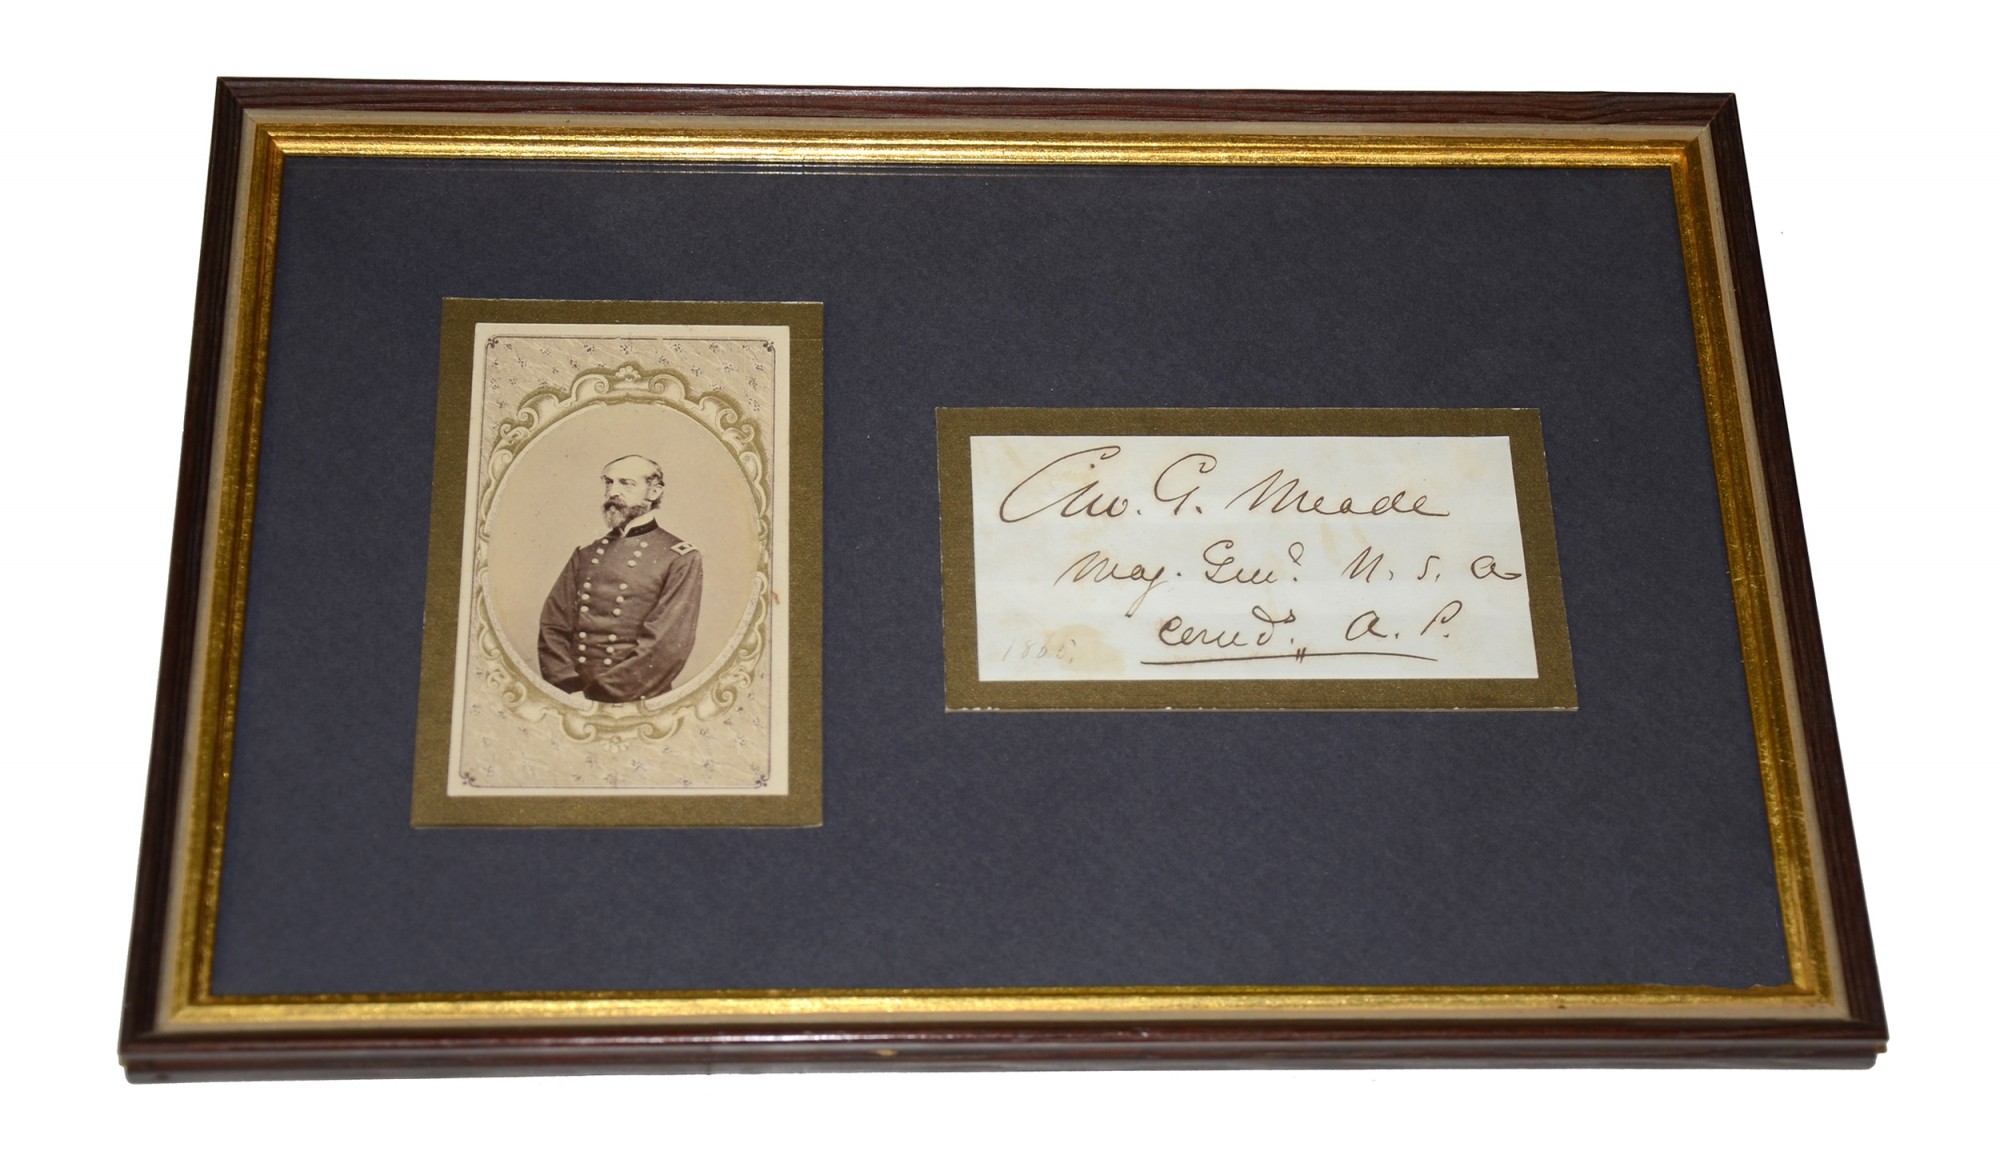 Geo. G. Meade
Maj. Genl. U. S. A
Comdg. A. P.
1865.